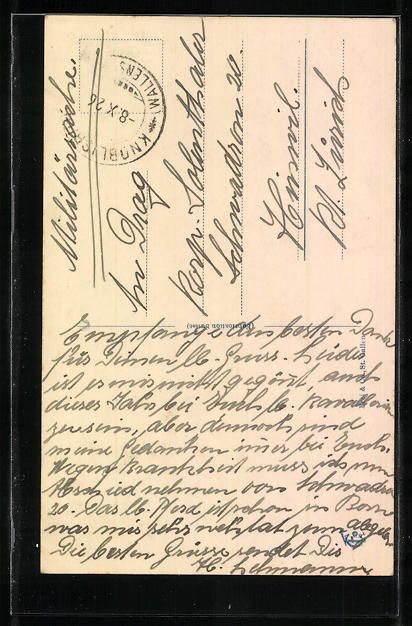 Militärsache.
KNOBLISBÜHL (WALLENS
-8.X.26
An Drag
Korp. Lohnthaler
Schwadron 20.
Hinwil.
Kt. Zürich
Empfange den besten Dank
für Deinen lb. Gruss. Leider
ist es mir nicht gegönt, auch
dieses Jahr bei Euch lb. Kavallerie
zu sein, aber dennoch sind
meine Gedanken immer bei Euch.
Wegen Krankheit muss ich nun
Abschied nehmen von Schwadron
20. Das lb. Pferd ist schon in Bern
was mir sehr weh tat zum abgeben
Die besten Grüsse sendet Dir
H. Lehmann